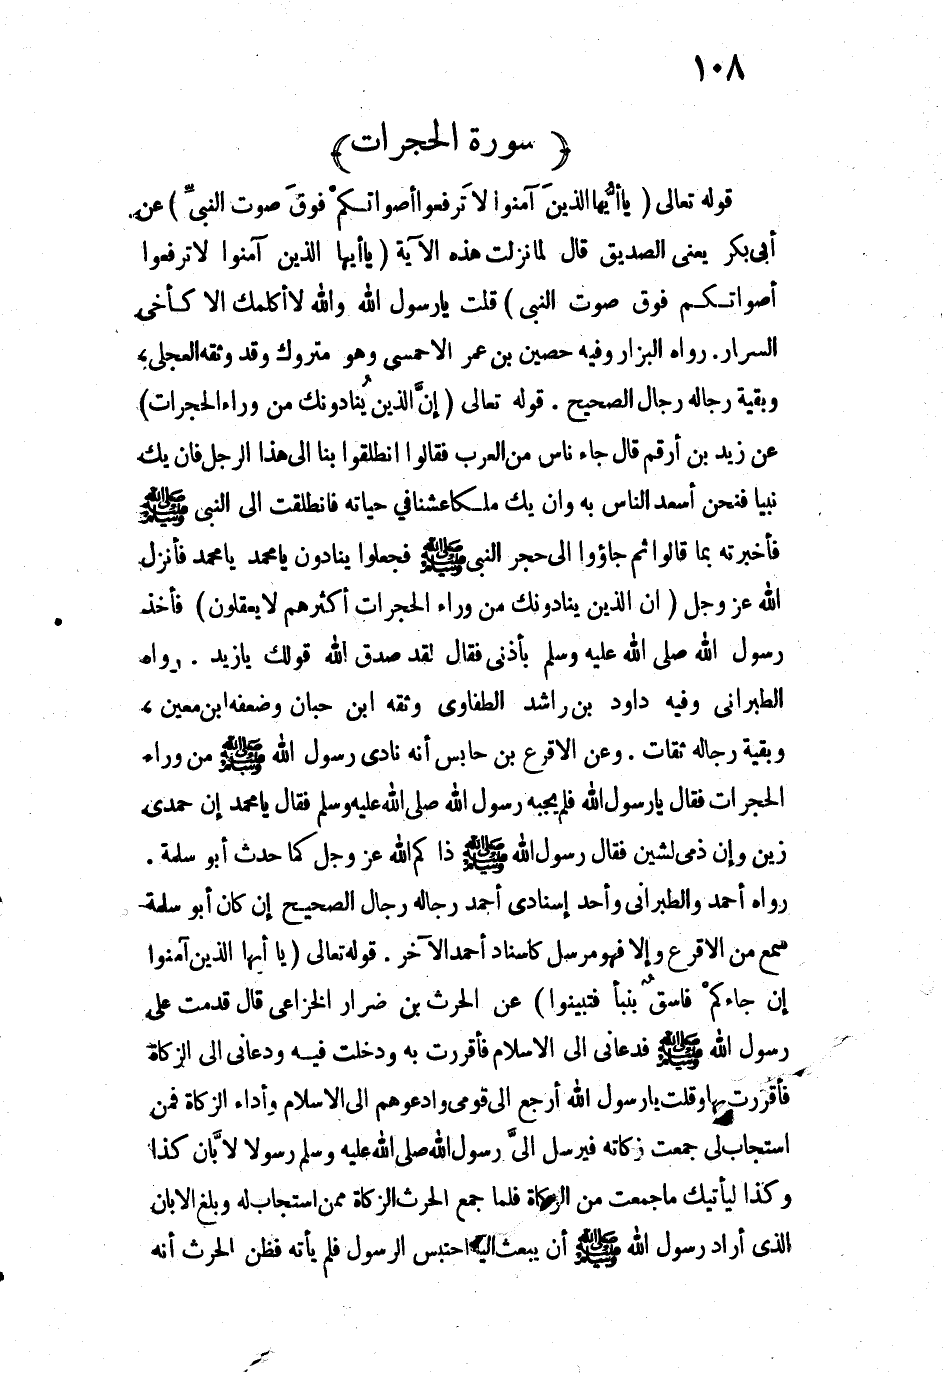 ١٠٨
﴿ سورة الحجرات ﴾
قوله تعالى ( ياأيُّها الذينَ آمنوا لا تَرفعوا أصواتكمْ فوقَ صوت النبيِّ ) عن
أبى بكر يعنى الصديق قال لما نزلت هذه الآية ( ياأيها الذين آمنوا لاترفعوا
أصواتكم فوق صوت النبى ) قلت يارسول الله والله لا أكلمك الا كأخى
السرار . رواه البزار وفيه حصين بن عمر الاحمسي وهو متروك وقد وثقه العجلى ،
وبقية رجاله رجال الصحيح . قوله تعالى ( إنَّ الذين يُنادونك من وراء الحجرات )
عن زيد بن أرقم قال جاء ناس من العرب فقالوا انطلقوا بنا الى هذا الرجل فان يك
نبيا فنحن أسعد الناس به وان يك ملكا عشنا في حياته فانطلقت الى النبى ﷺ
فأخبرته بما قالوا ثم جاؤوا الى حجر النبى ﷺ فجعلوا ينادون يامحمد يامحمد فأنزل
الله عز وجل ( ان الذين ينادونك من وراء الحجرات أكثرهم لا يعقلون ) فأخذ
رسول الله صلى الله عليه وسلم بأذنى فقال لقد صدق الله قولك يازيد . رواه
الطبرانى وفيه داود بن راشد الطفاوى وثقه ابن حبان وضعفه ابن معين ،
وبقية رجاله ثقات . وعن الاقرع بن حابس أنه نادى رسول الله ﷺ من وراء
الحجرات فقال يارسول الله فلم يجبه رسول الله صلى الله عليه وسلم فقال يامحمد إن حمدى
زين وإن ذمى لشين فقال رسول الله ﷺ ذا كم الله عز وجل كما حدث أبو سلمة .
رواه أحمد والطبرانى وأحد إسنادى أحمد رجاله رجال الصحيح إن كان أبو سلمة
سمع من الاقرع وإلا فهو مرسل كاسناد أحمد الآخر . قوله تعالى ( يا أيها الذين آمنوا
إن جاءكمْ فاسقٌ بنبأ فتبينوا ) عن الحرث بن ضرار الخزاعى قال قدمت على
رسول الله ﷺ فدعانى الى الاسلام فأقررت به ودخلت فيه ودعانى الى الزكاة
فأقررت بها وقلت يارسول الله أرجع الى قومى وادعوهم الى الاسلام وأداء الزكاة فمن
استجاب لى جمعت زكاته فيرسل الىَّ رسول الله صلى الله عليه وسلم رسولا لابَّان كذا
وكذا ليأتيك ماجمعت من الزكاة فلما جمع الحرث الزكاة ممن استجاب له وبلغ الابان
الذى أراد رسول الله ﷺ أن يبعث اليه احتبس الرسول فلم يأته فظن الحرث أنه